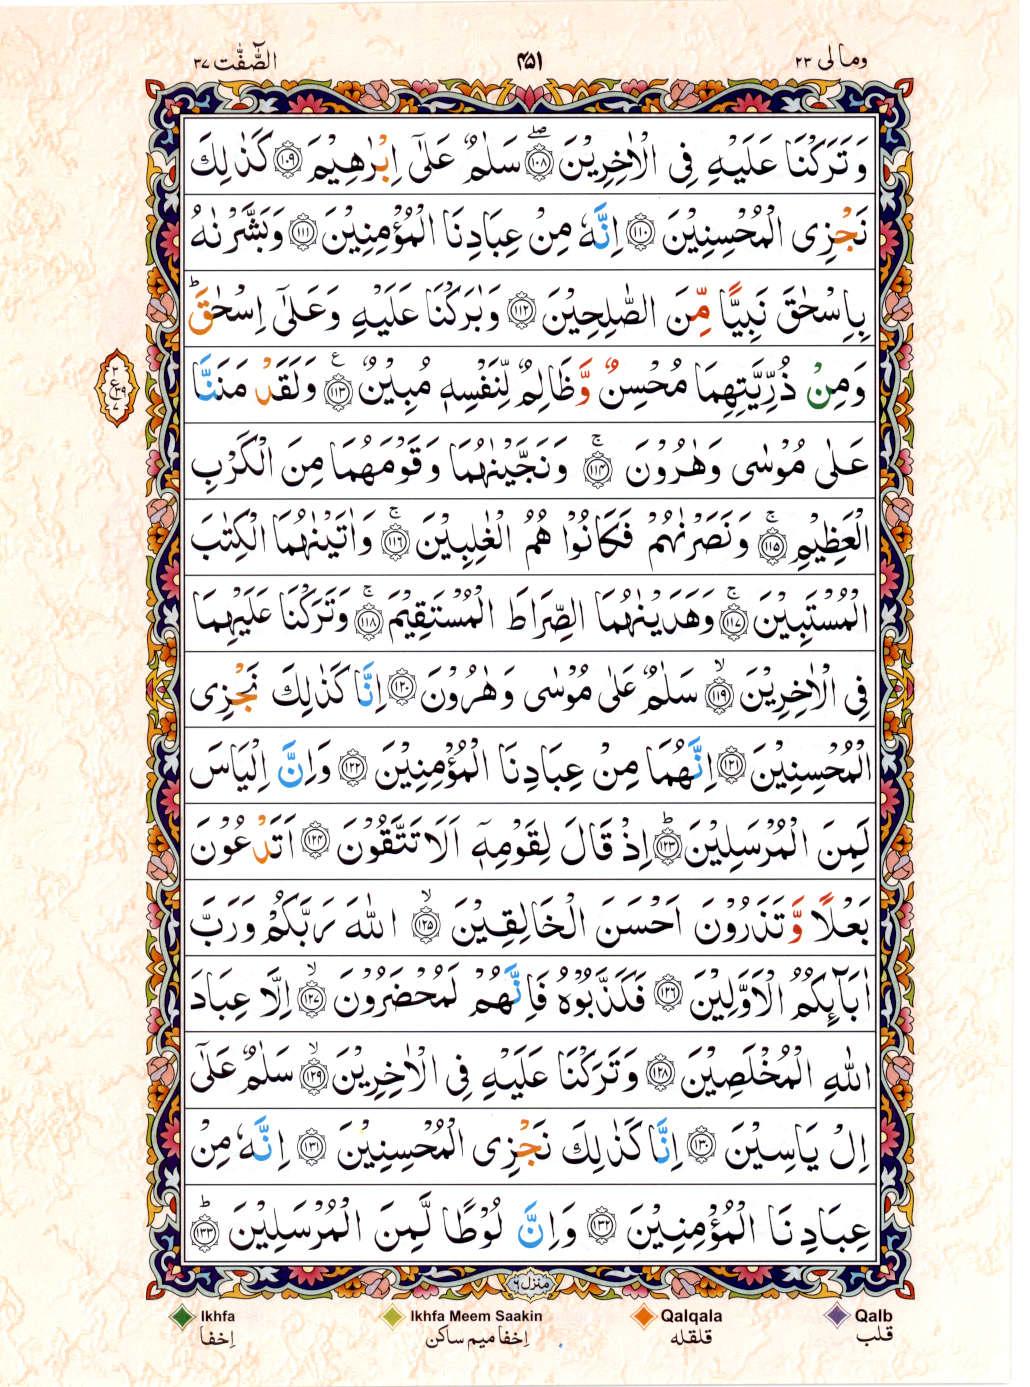 ومالی ۲۳
۴۵۱
الصّٰٓفّٰت ۳۷
وَتَرَكْنَا عَلَيْهِ فِى الْاٰخِرِيْنَ ۝۱۰۸ۖ سَلٰمٌ عَلٰٓى اِبْرٰهِيْمَ ۝۱۰۹ كَذٰلِكَ
نَجْزِى الْمُحْسِنِيْنَ ۝۱۱۰ اِنَّهٗ مِنْ عِبَادِنَا الْمُؤْمِنِيْنَ ۝۱۱۱ وَبَشَّرْنٰهُ
بِاِسْحٰقَ نَبِيًّا مِّنَ الصّٰلِحِيْنَ ۝۱۱۲ وَبٰرَكْنَا عَلَيْهِ وَعَلٰٓى اِسْحٰقَ ؕ
وَمِنْ ذُرِّيَّتِهِمَا مُحْسِنٌ وَّظَالِمٌ لِّنَفْسِهٖ مُبِيْنٌ ۝۱۱۳ع وَلَقَدْ مَنَنَّا
عَلٰى مُوْسٰى وَهٰرُوْنَ ۝۱۱۴ۚ وَنَجَّيْنٰهُمَا وَقَوْمَهُمَا مِنَ الْكَرْبِ
الْعَظِيْمِ ۝۱۱۵ۚ وَنَصَرْنٰهُمْ فَكَانُوْا هُمُ الْغٰلِبِيْنَ ۝۱۱۶ۚ وَاٰتَيْنٰهُمَا الْكِتٰبَ
الْمُسْتَبِيْنَ ۝۱۱۷ۚ وَهَدَيْنٰهُمَا الصِّرَاطَ الْمُسْتَقِيْمَ ۝۱۱۸ۚ وَتَرَكْنَا عَلَيْهِمَا
فِى الْاٰخِرِيْنَ ۝۱۱۹ۙ سَلٰمٌ عَلٰى مُوْسٰى وَهٰرُوْنَ ۝۱۲۰ اِنَّا كَذٰلِكَ نَجْزِى
الْمُحْسِنِيْنَ ۝۱۲۱ اِنَّهُمَا مِنْ عِبَادِنَا الْمُؤْمِنِيْنَ ۝۱۲۲ وَاِنَّ اِلْيَاسَ
لَمِنَ الْمُرْسَلِيْنَ ۝۱۲۳ؕ اِذْ قَالَ لِقَوْمِهٖٓ اَلَا تَتَّقُوْنَ ۝۱۲۴ اَتَدْعُوْنَ
بَعْلًا وَّتَذَرُوْنَ اَحْسَنَ الْخَالِقِيْنَ ۝۱۲۵ۙ اللّٰهَ رَبَّكُمْ وَرَبَّ
اٰبَآئِكُمُ الْاَوَّلِيْنَ ۝۱۲۶ فَكَذَّبُوْهُ فَاِنَّهُمْ لَمُحْضَرُوْنَ ۝۱۲۷ۙ اِلَّا عِبَادَ
اللّٰهِ الْمُخْلَصِيْنَ ۝۱۲۸ وَتَرَكْنَا عَلَيْهِ فِى الْاٰخِرِيْنَ ۝۱۲۹ۙ سَلٰمٌ عَلٰٓى
اِلْ يَاسِيْنَ ۝۱۳۰ اِنَّا كَذٰلِكَ نَجْزِى الْمُحْسِنِيْنَ ۝۱۳۱ اِنَّهٗ مِنْ
عِبَادِنَا الْمُؤْمِنِيْنَ ۝۱۳۲ وَاِنَّ لُوْطًا لَّمِنَ الْمُرْسَلِيْنَ ۝۱۳۳ؕ
۳
ع ۳۹
۷
منزل ۶
Ikhfa
اِخفا
Ikhfa Meem Saakin
اِخفا میم ساکن
Qalqala
قلقله
Qalb
قلب